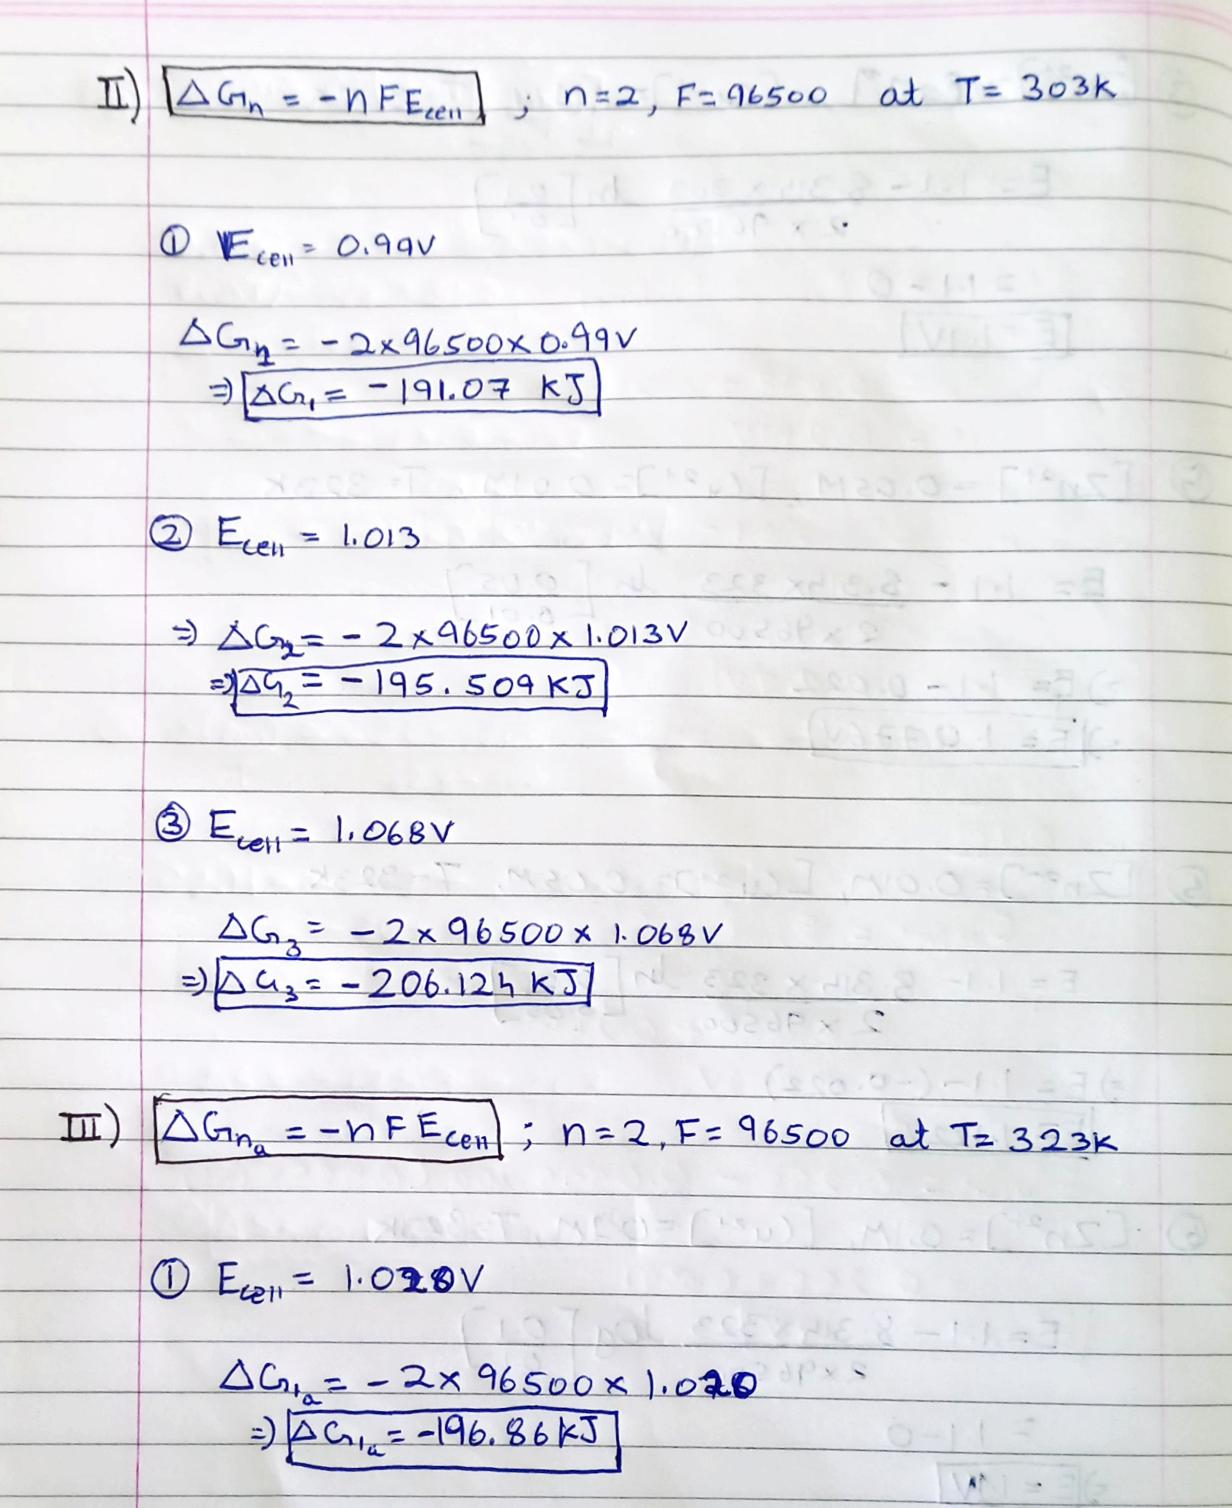 II) ΔGn = -nFEcell ; n=2, F=96500 at T= 303K
① Ecell = 0.99V
ΔG1 = - 2x96500x0.99V
⇒ ΔG1 = -191.07 KJ
② Ecell = 1.013
⇒ ΔG2 = - 2x96500x1.013V
⇒ ΔG2 = -195.509 KJ
③ Ecell = 1.068V
ΔG3 = -2x96500x 1.068V
⇒ ΔG3 = -206.124 KJ
III) ΔGna = -nFEcell ; n=2, F= 96500 at T= 323K
① Ecell = 1.020V
ΔG1a = -2x 96500x 1.020
⇒ ΔG1a = -196.86 KJ